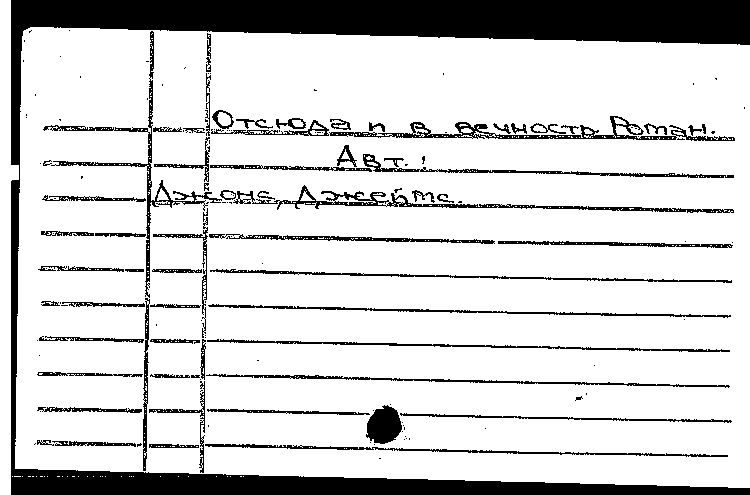 Отсюда и в вечность. Роман.
Авт.:
Джонс, Джеймс.